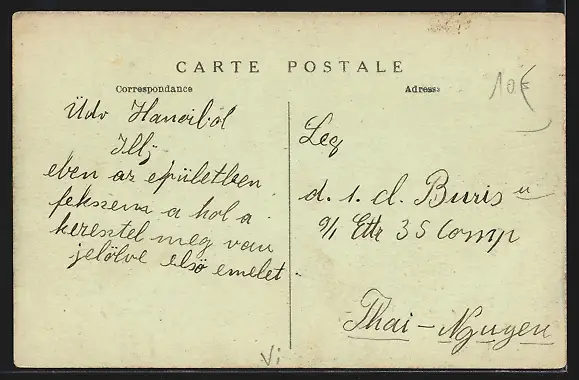 CARTE POSTALE
Correspondance
Adresse
10€
Üdv Hanoiból
Illj
eben az épületben
fekszem a hol a
keresztel meg van
jelölve első emelet
Leg
d. 1. cl. Buris
9/1 Ettr 35 Comp
Thai-Nguyen
Vi